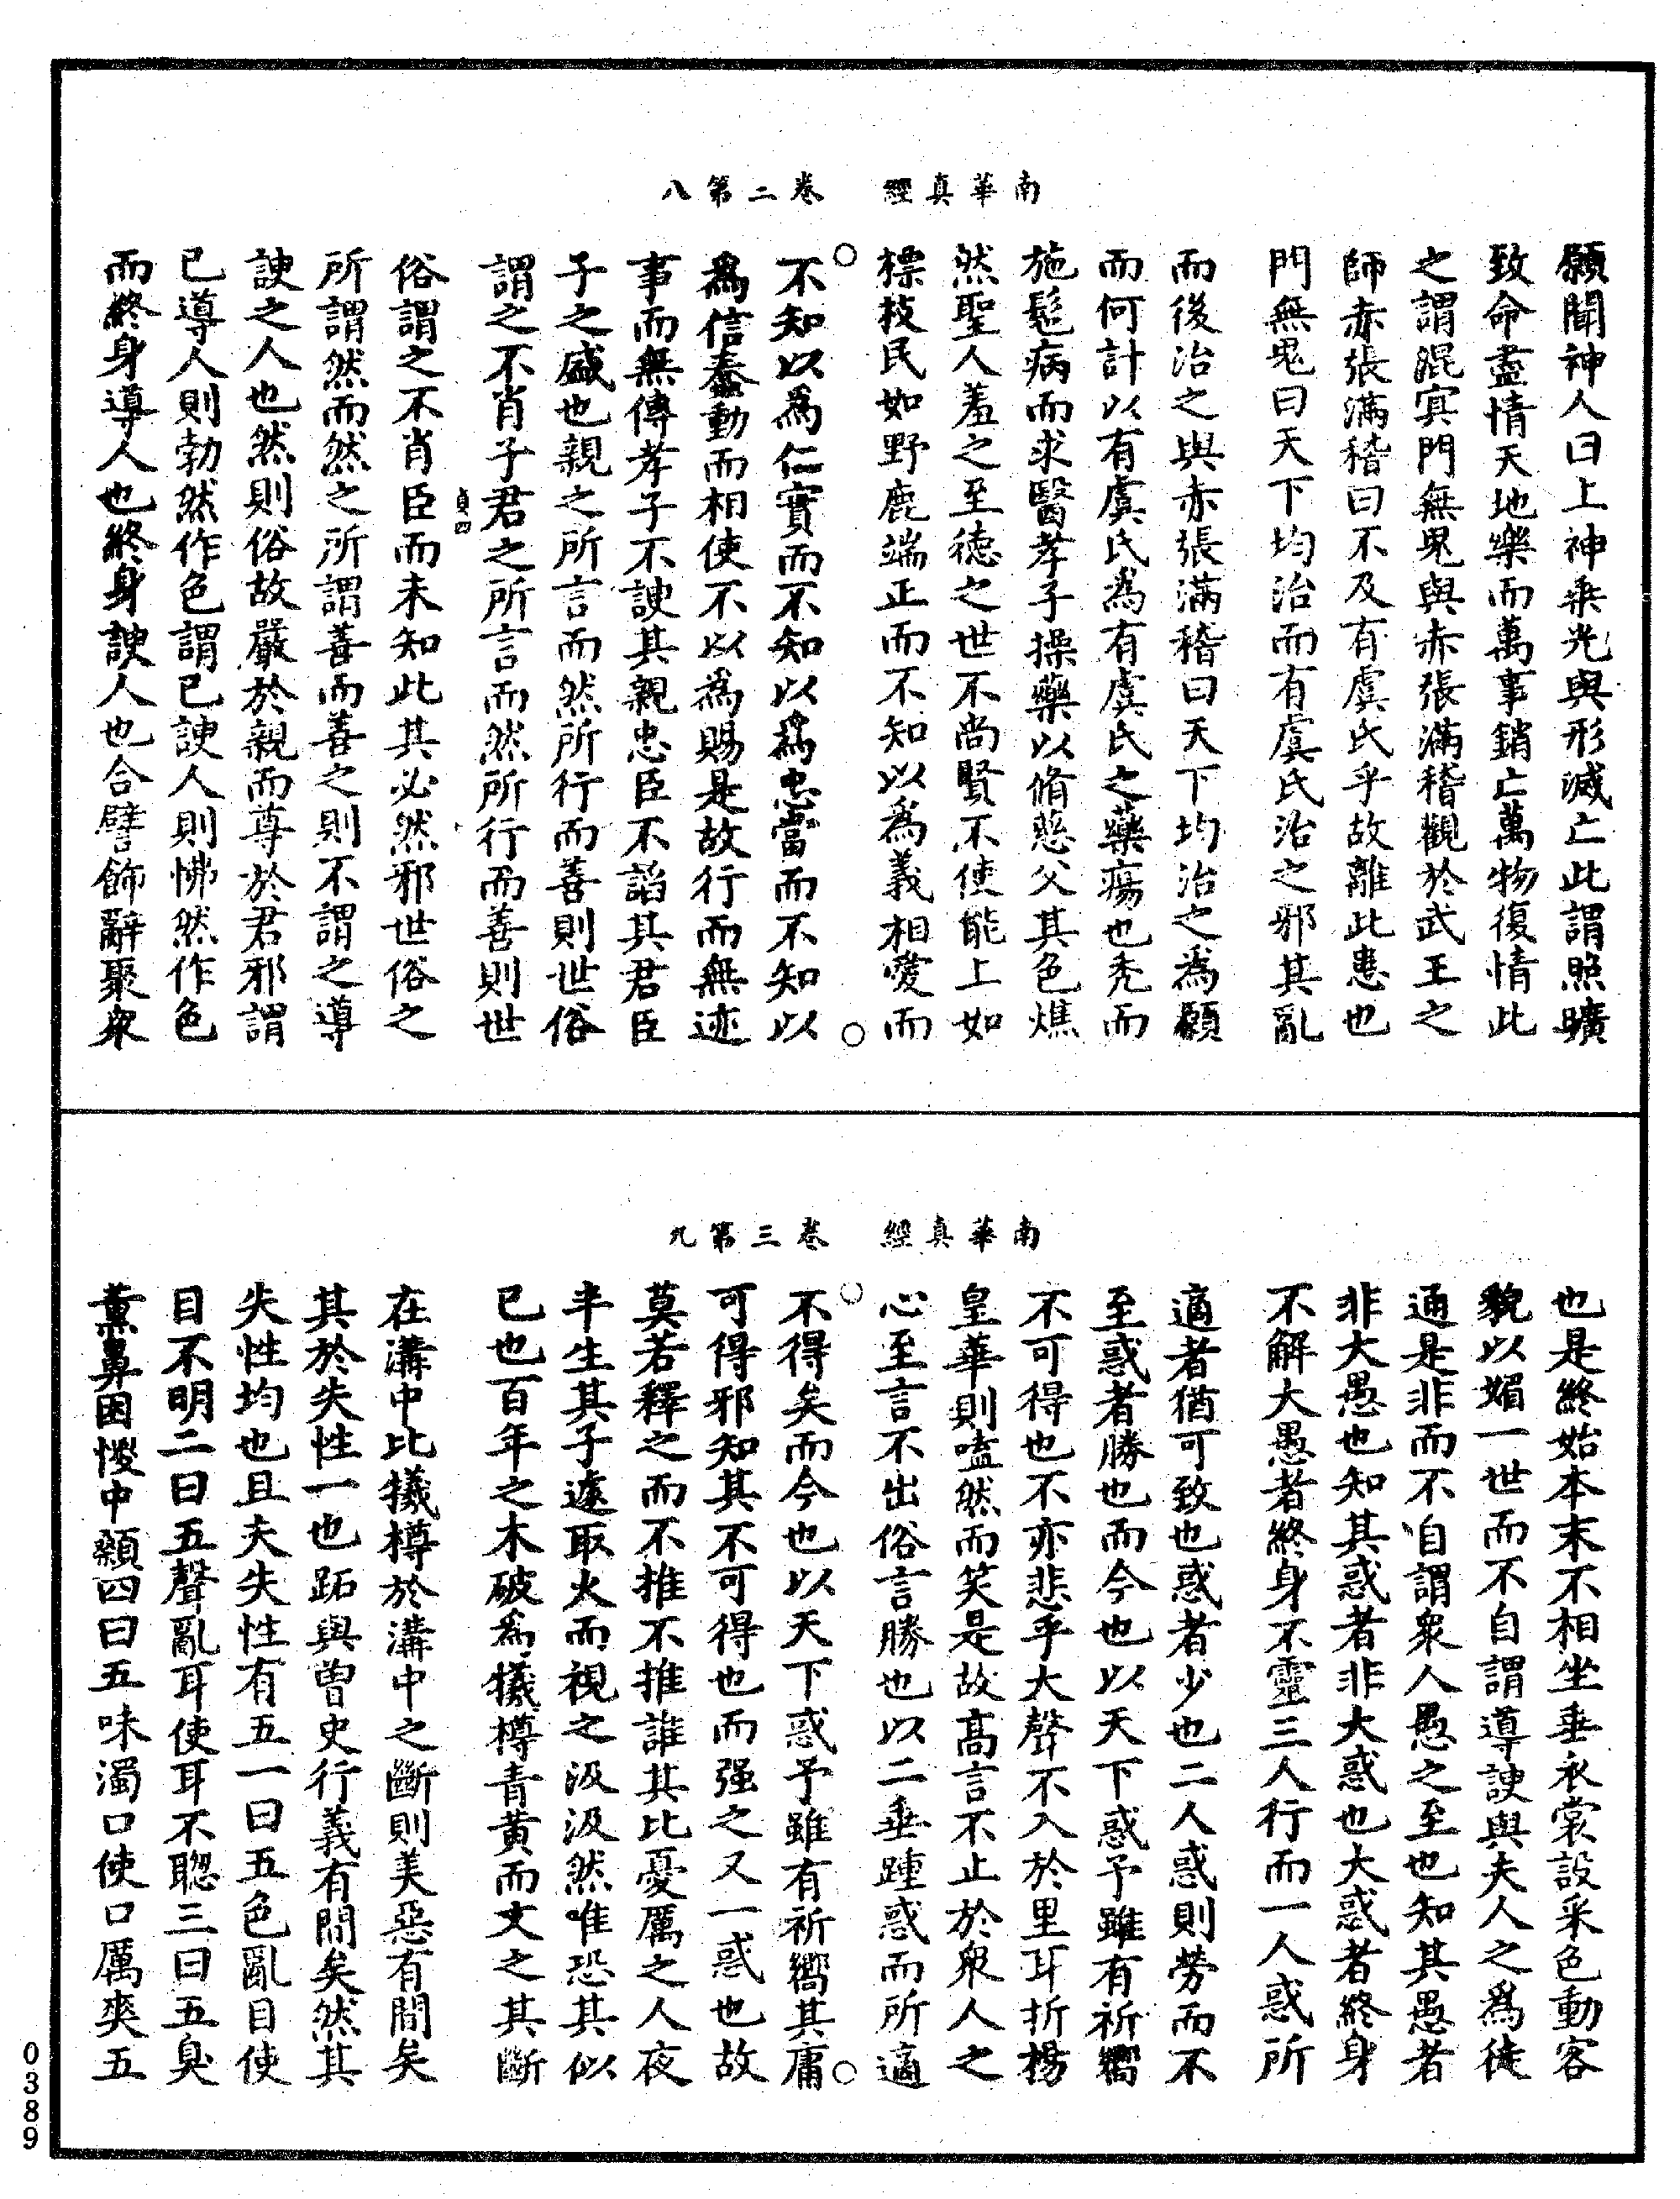 南華真經　卷二第八
願聞神人曰上神乘光與形滅亡此謂照曠
致命盡情天地樂而萬事銷亡萬物復情此
之謂混㝠門無鬼與赤張滿稽觀於武王之
師赤張滿稽曰不及有虞氏乎故離此患也
門無鬼曰天下均治而有虞氏治之邪其亂
而後治之與赤張滿稽曰天下均治之為願
而何計以有虞氏為有虞氏之藥瘍也禿而
施髢病而求醫孝子操藥以脩慈父其色燋
然聖人羞之至德之世不尚賢不使能上如
標枝民如野鹿端正而不知以為義相愛而
不知以為仁實而不知以為忠當而不知以
為信蠢動而相使不以為賜是故行而無迹
事而無傳孝子不諛其親忠臣不諂其君臣
子之盛也親之所言而然所行而善則世俗
謂之不肖子君之所言而然所行而善則世
貞四
俗謂之不肖臣而未知此其必然邪世俗之
所謂然而然之所謂善而善之則不謂之導
諛之人也然則俗故嚴於親而尊於君邪謂
已導人則勃然作色謂已諛人則怫然作色
而終身導人也終身諛人也合譬飾辭聚衆
南華真經　卷三第九
也是終始本末不相坐垂衣裳設采色動容
貌以媚一世而不自謂導諛與夫人之為徒
通是非而不自謂衆人愚之至也知其愚者
非大愚也知其惑者非大惑也大惑者終身
不解大愚者終身不靈三人行而一人惑所
適者猶可致也惑者少也二人惑則勞而不
至惑者勝也而今也以天下惑予雖有祈嚮
不可得也不亦悲乎大聲不入於里耳折楊
皇華則嗑然而笑是故高言不止於衆人之
心至言不出俗言勝也以二垂踵惑而所適
不得矣而今也以天下惑予雖有祈嚮其庸
可得邪知其不可得也而强之又一惑也故
莫若釋之而不推不推誰其比憂厲之人夜
半生其子遽取火而視之汲汲然唯恐其似
已也百年之木破為犧樽青黃而文之其斷
在溝中比犧樽於溝中之斷則美惡有間矣
其於失性一也跖與曾史行義有間矣然其
失性均也且夫失性有五一曰五色亂目使
目不明二曰五聲亂耳使耳不聰三曰五臭
薰鼻困惾中顙四曰五味濁口使口厲爽五
0389